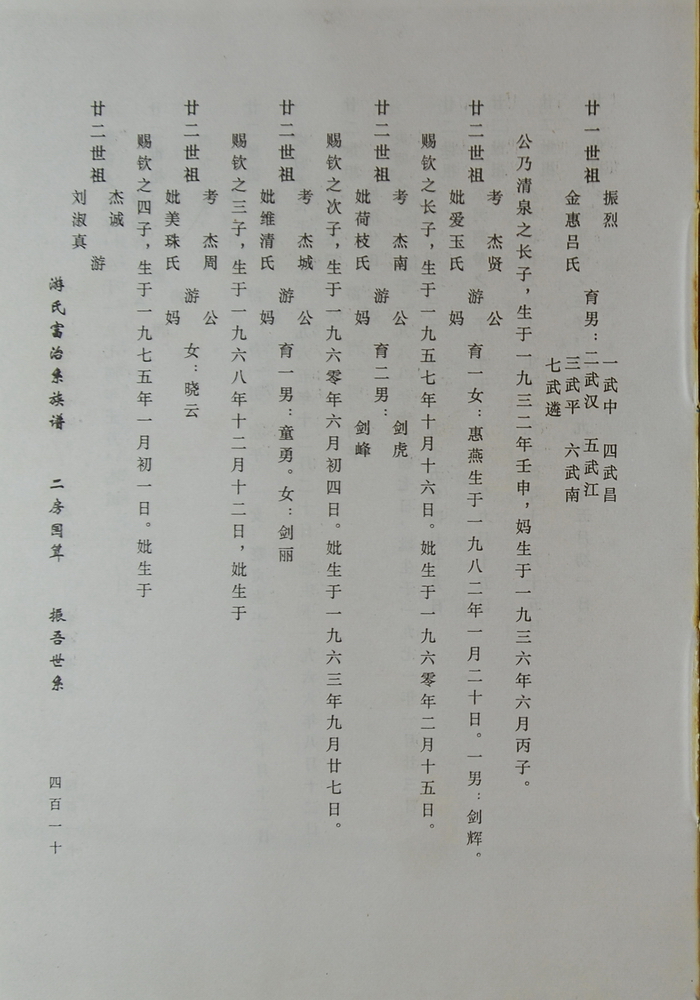 廿一世祖
振烈
金惠吕氏
育男：
一武中 四武昌
二武汉 五武江
三武平 六武南
七武遴
公乃清泉之长子，生于一九三二年壬申，妈生于一九三六年六月丙子。
廿二世祖
考 杰贤 公
妣爱玉氏 游 妈
育一女：惠燕生于一九八二年一月二十日。一男：剑辉。
赐钦之长子，生于一九五七年十月十六日。妣生于一九六零年二月十五日。
廿二世祖
考 杰南 公
妣荷枝氏 游 妈
育二男：
剑虎
剑峰
赐钦之次子，生于一九六零年六月初四日。妣生于一九六三年九月廿七日。
廿二世祖
考 杰城 公
妣维清氏 游 妈
育一男：童勇。女：剑丽
赐钦之三子，生于一九六八年十二月十二日，妣生于
廿二世祖
考 杰周 公
妣美珠氏 游 妈
女：晓云
赐钦之四子，生于一九七五年一月初一日。妣生于
廿二世祖
杰诚
游
刘淑真
游氏富治系族谱 二房国算 振吾世系 四百一十